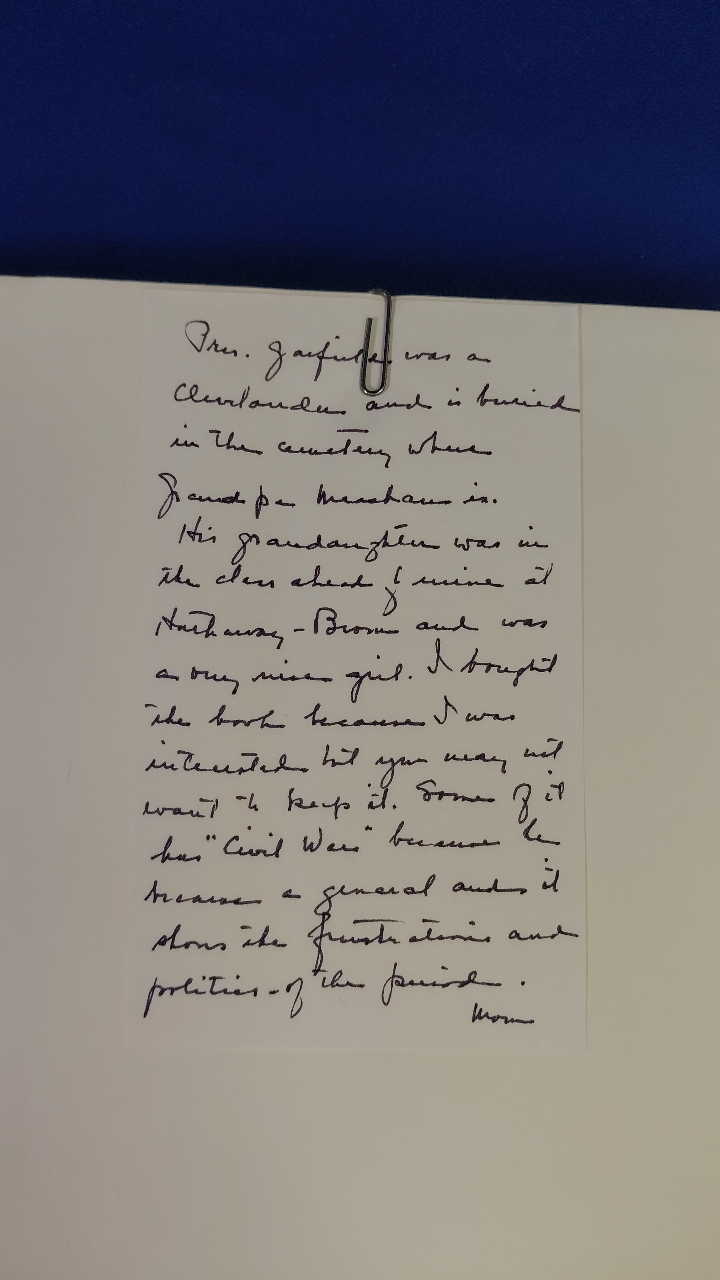 Pres. Garfield was a
Clevelander and is buried
in the cemetery where
Grandpa is.
His grandaughter was in
the class ahead of mine at
Hathaway-Brown and was
a very nice girl. I bought
the book because I was
interested but you may not
want to keep it. Some of it
has "Civil War" because he
became a general and it
shows the frustrations and
politics - of the period.
Mom